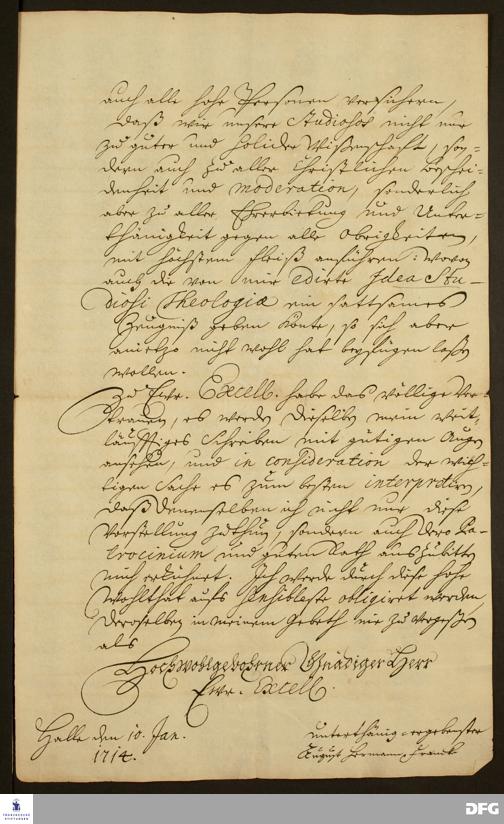 auch alle hohe Personen versichern,
daß wir unsere Studiosos nicht nur
zu guter und solider Wißenschafft, son-
dern auch zu aller Christlichen beschei-
denheit und moderation, sonderlich
aber zu aller Ehrerbietung und Unter-
thänigkeit gegen alle Obrigkeiten,
mit höchstem fleiß anführen: wovon
auch die von mir edirte Idea Stu-
diosi Theologiæ ein sattsames
Zeugniß geben könte, so sich aber
anietzo nicht wohl hat beyfügen laßen
wollen.
Zu Ewr. Excell. habe das völlige Ver-
trauen, es werden dieselben mein weit-
läufftiges Schreiben mit gütigen Augen
ansehen, und in consideration der wich-
tigen Sache es zum besten interpretiren,
daß denenselben ich nicht nur diese
Vorstellung zu thun, sondern auch dero Pa-
trocinium und guten Rath auszubitten
mich erkühnet. Ich werde durch diese hohe
Wohlthat aufs sensibleste obligiret werden
deroselben in meinem Gebeth nie zu vergeßen
als
Hochwohlgebohrner Gnädiger Herr
Ewr. Excell.
Halle den 10. Jan.
1714.
unterthänig-ergebenster
August Hermann Franck
FRANCKESCHE STIFTUNGEN
DFG